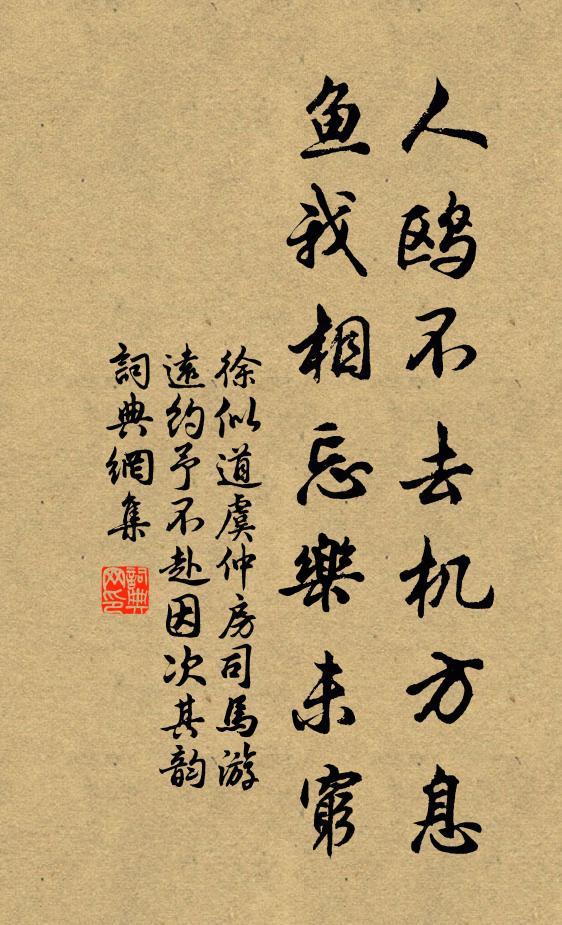 人鸥不去机方息
鱼我相忘樂未窮
徐似道虞仲房司馬游
遠約予不赴因次其韵
詞典網集
詞典
网印